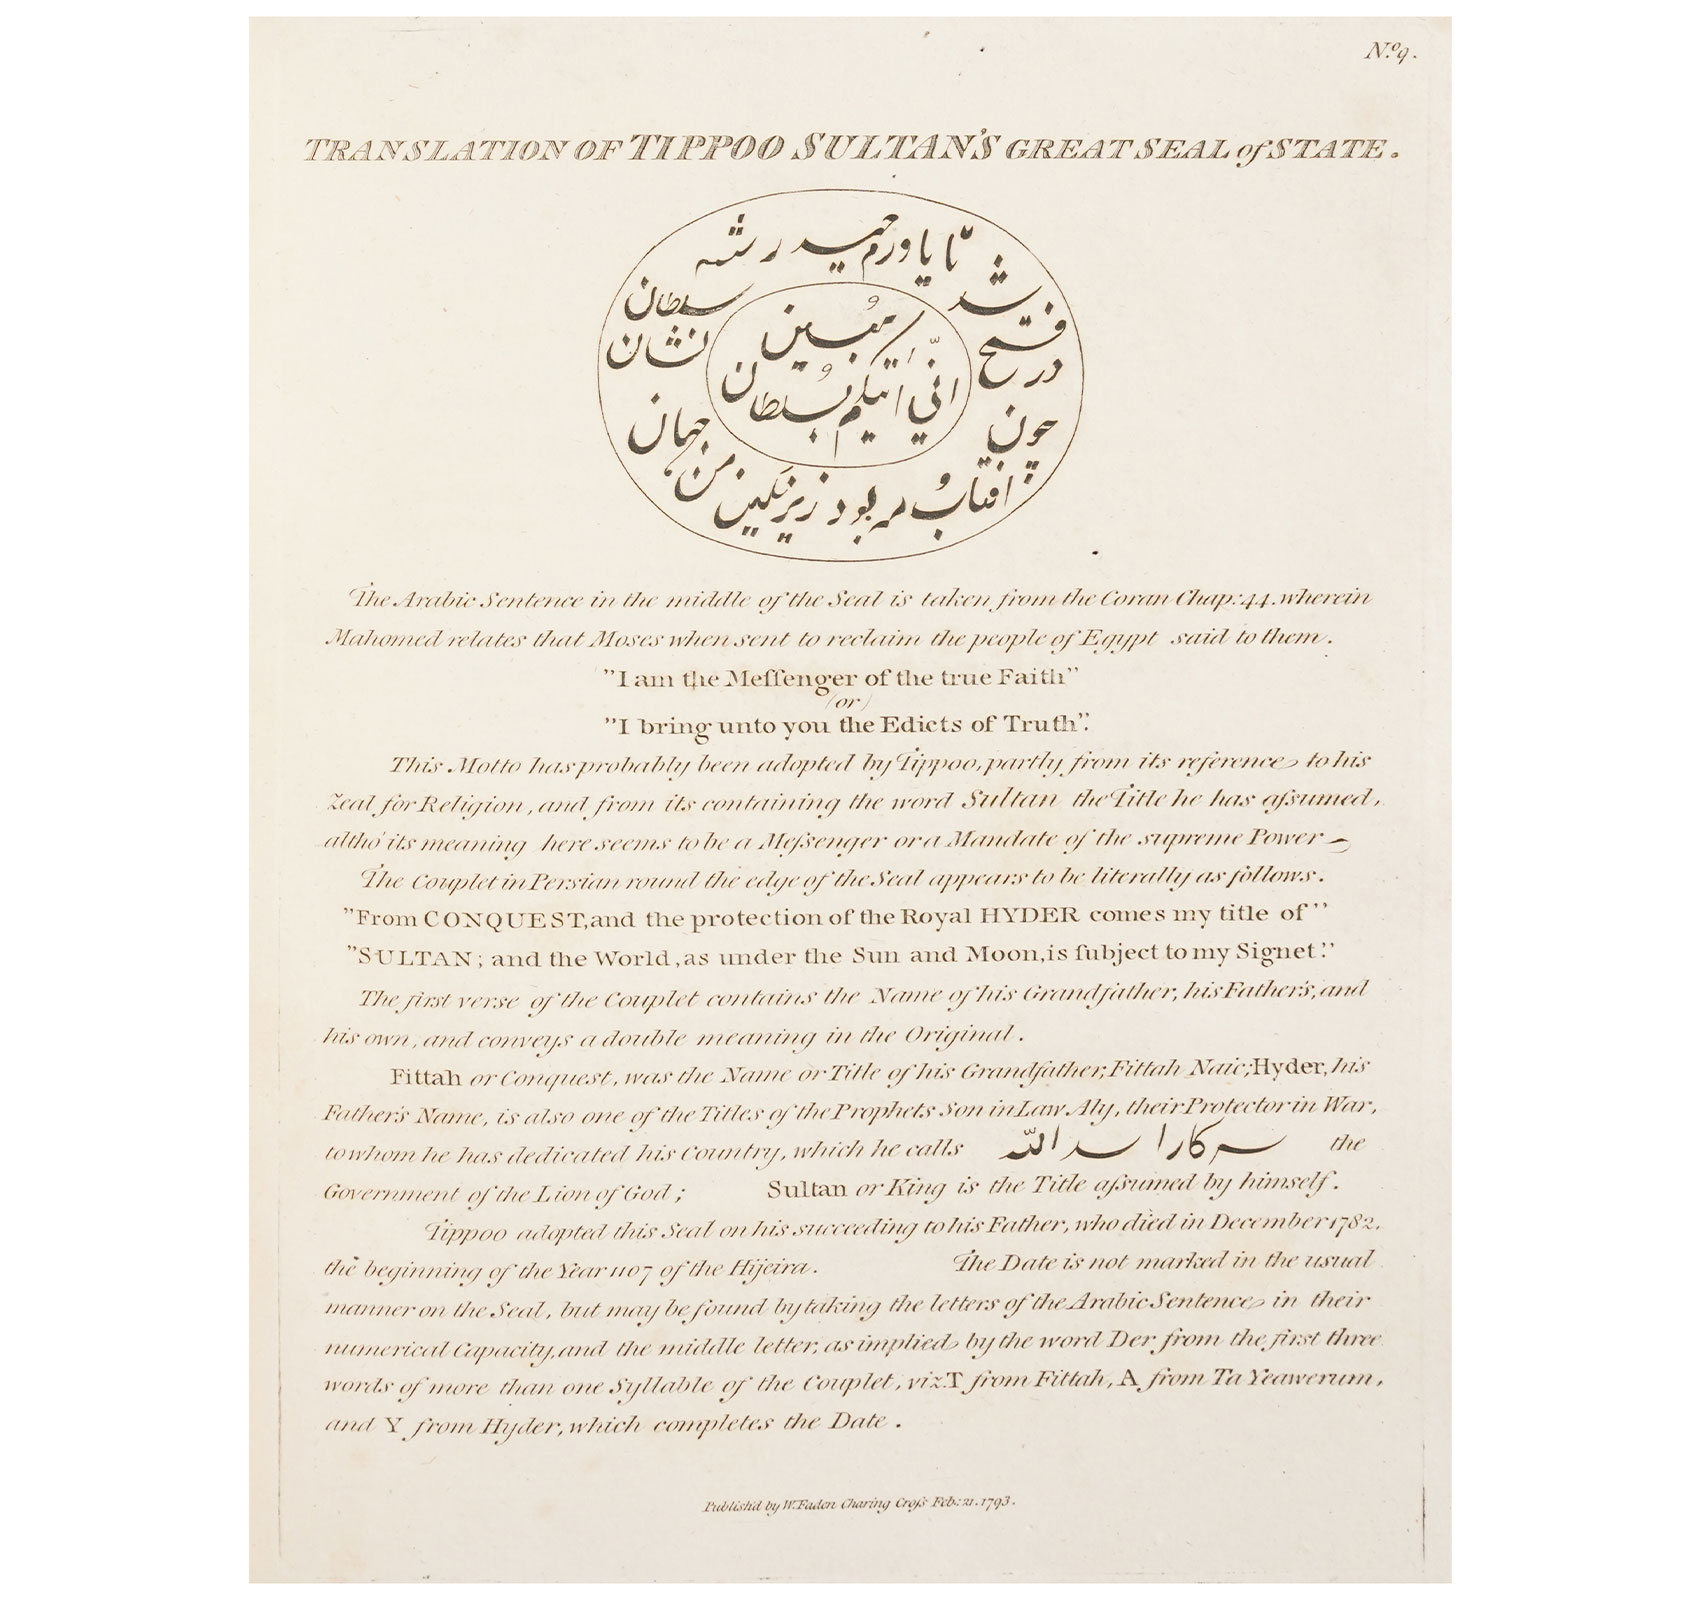 No. 9.
TRANSLATION OF TIPPOO SULTAN'S GREAT SEAL of STATE.
تا یاورم حیدر شه
سلطان
نشان
جهان
من
شد
فتح
در
چون
افتاب و مه بود زیر نگین
مبین
انّي اتيكم بسلطان
The Arabic Sentence in the middle of the Seal is taken from the Coran Chap: 44. wherein
Mahomed relates that Moses when sent to reclaim the people of Egypt said to them.
"I am the Meſſenger of the true Faith"
(or)
"I bring unto you the Edicts of Truth".
This Motto has probably been adopted by Tippoo, partly from its reference to his
Zeal for Religion, and from its containing the word Sultan the Title he has aſsumed,
altho' its meaning here seems to be a Meſsenger or a Mandate of the supreme Power
The Couplet in Persian round the edge of the Seal appears to be literally as follows.
"From CONQUEST, and the protection of the Royal HYDER comes my title of"
"SULTAN; and the World, as under the Sun and Moon, is ſubject to my Signet."
The first verse of the Couplet contains the Name of his Grandfather, his Father's, and
his own, and conveys a double meaning in the Original.
Fittah or Conquest, was the Name or Title of his Grandfather, Fittah Naic; Hyder, his
Father's Name, is also one of the Titles of the Prophets Son in Law Aly, their Protector in War,
to whom he has dedicated his Country, which he calls سركار اسد الله the
Government of the Lion of God; Sultan or King is the Title aſsumed by himself.
Tippoo adopted this Seal on his succeeding to his Father, who died in December 1782,
the beginning of the Year 1107 of the Hijeira. The Date is not marked in the usual
manner on the Seal, but may be found by taking the letters of the Arabic Sentence in their
numerical Capacity, and the middle letter, as implied by the word Der from the first three
words of more than one Syllable of the Couplet, viz. T from Fittah, A from Ta Yeawerum,
and Y from Hyder, which completes the Date.
Publish'd by W. Faden Charing Croſs Feb: 21. 1793.